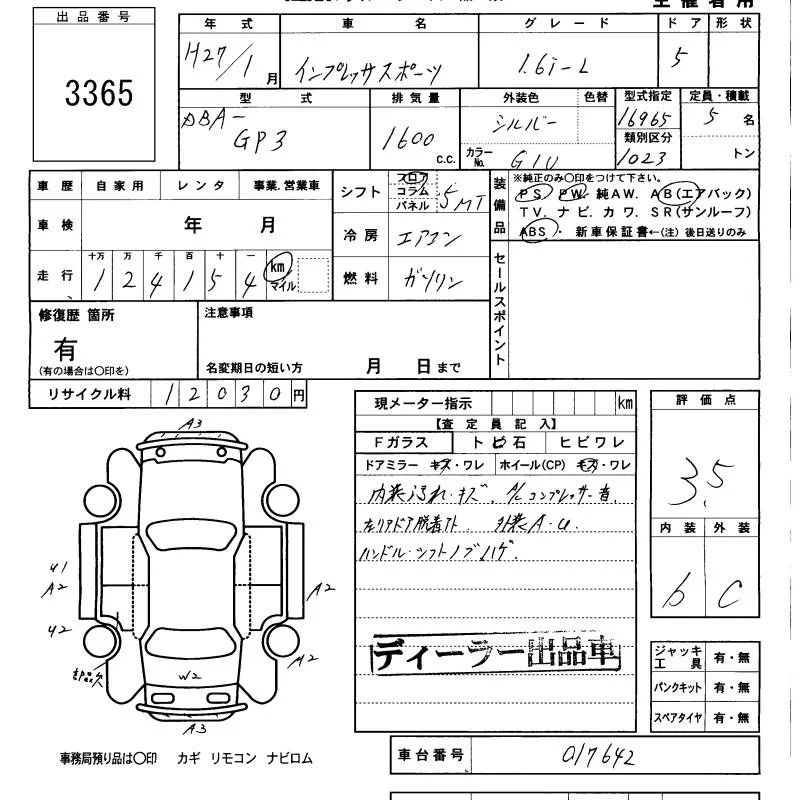 主催者用
出品番号
3365
年式 車名 グレード ドア 形状
H27/1月 インプレッサスポーツ 1.6i-L 5
型式 排気量 外装色 色替 型式指定 定員・積載
DBA-
GP3 1600 c.c. シルバー 16965 5名
カラーNo. G1U 類別区分 1023 トン
車歴 自家用 レンタ 事業.営業車
シフト フロア コラム パネル 5MT
装備品 ※純正のみ〇印をつけて下さい。
PS. PW. 純AW. AB(エアバック)
TV. ナビ. カワ. SR(サンルーフ)
ABS・新車保証書←(注)後日送りのみ
車検 年 月
冷房 エアコン
走行 十万 万 千 百 十 一
1 2 4 1 5 4 km マイル
燃料 ガソリン
セールスポイント
修復歴 箇所
有
(有の場合は〇印を)
注意事項
名変期日の短い方 月 日まで
リサイクル料 12030円
現メーター指示 km
【査定員記入】
Fガラス トビ石 ヒビワレ
ドアミラー キズ・ワレ ホイール(CP) キズ・ワレ
内装汚れ・キズ、A/Cコンプレッサー音、
左リアドア脱着アト、外装A・U、
ハンドル・シフトノブハゲ
ディーラー出品車
評価点
3.5
内装 外装
b C
ジャッキ工具 有・無
パンクキット 有・無
スペアタイヤ 有・無
A3
U1
A2
A2
U2
A2
W2
A3
事務局預り品は〇印 カギ リモコン ナビロム
車台番号 017642